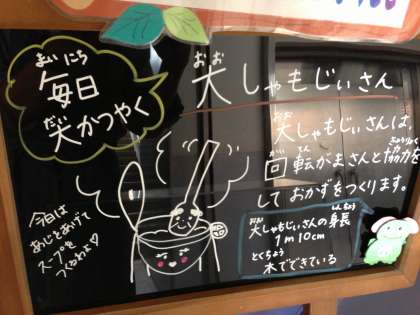 まいにち
毎日
だい
大かつやく
おお
大しゃもじいさん
おお
大しゃもじいさんは、
かい てん きょうりょく
回転がまさんと協力を
して おかずをつくります。
今日は
あじとあげて
スープを
つくるわよ♡
おお しんちょう
大しゃもじいさんの身長
1m10cm
とくちょう
木でできている